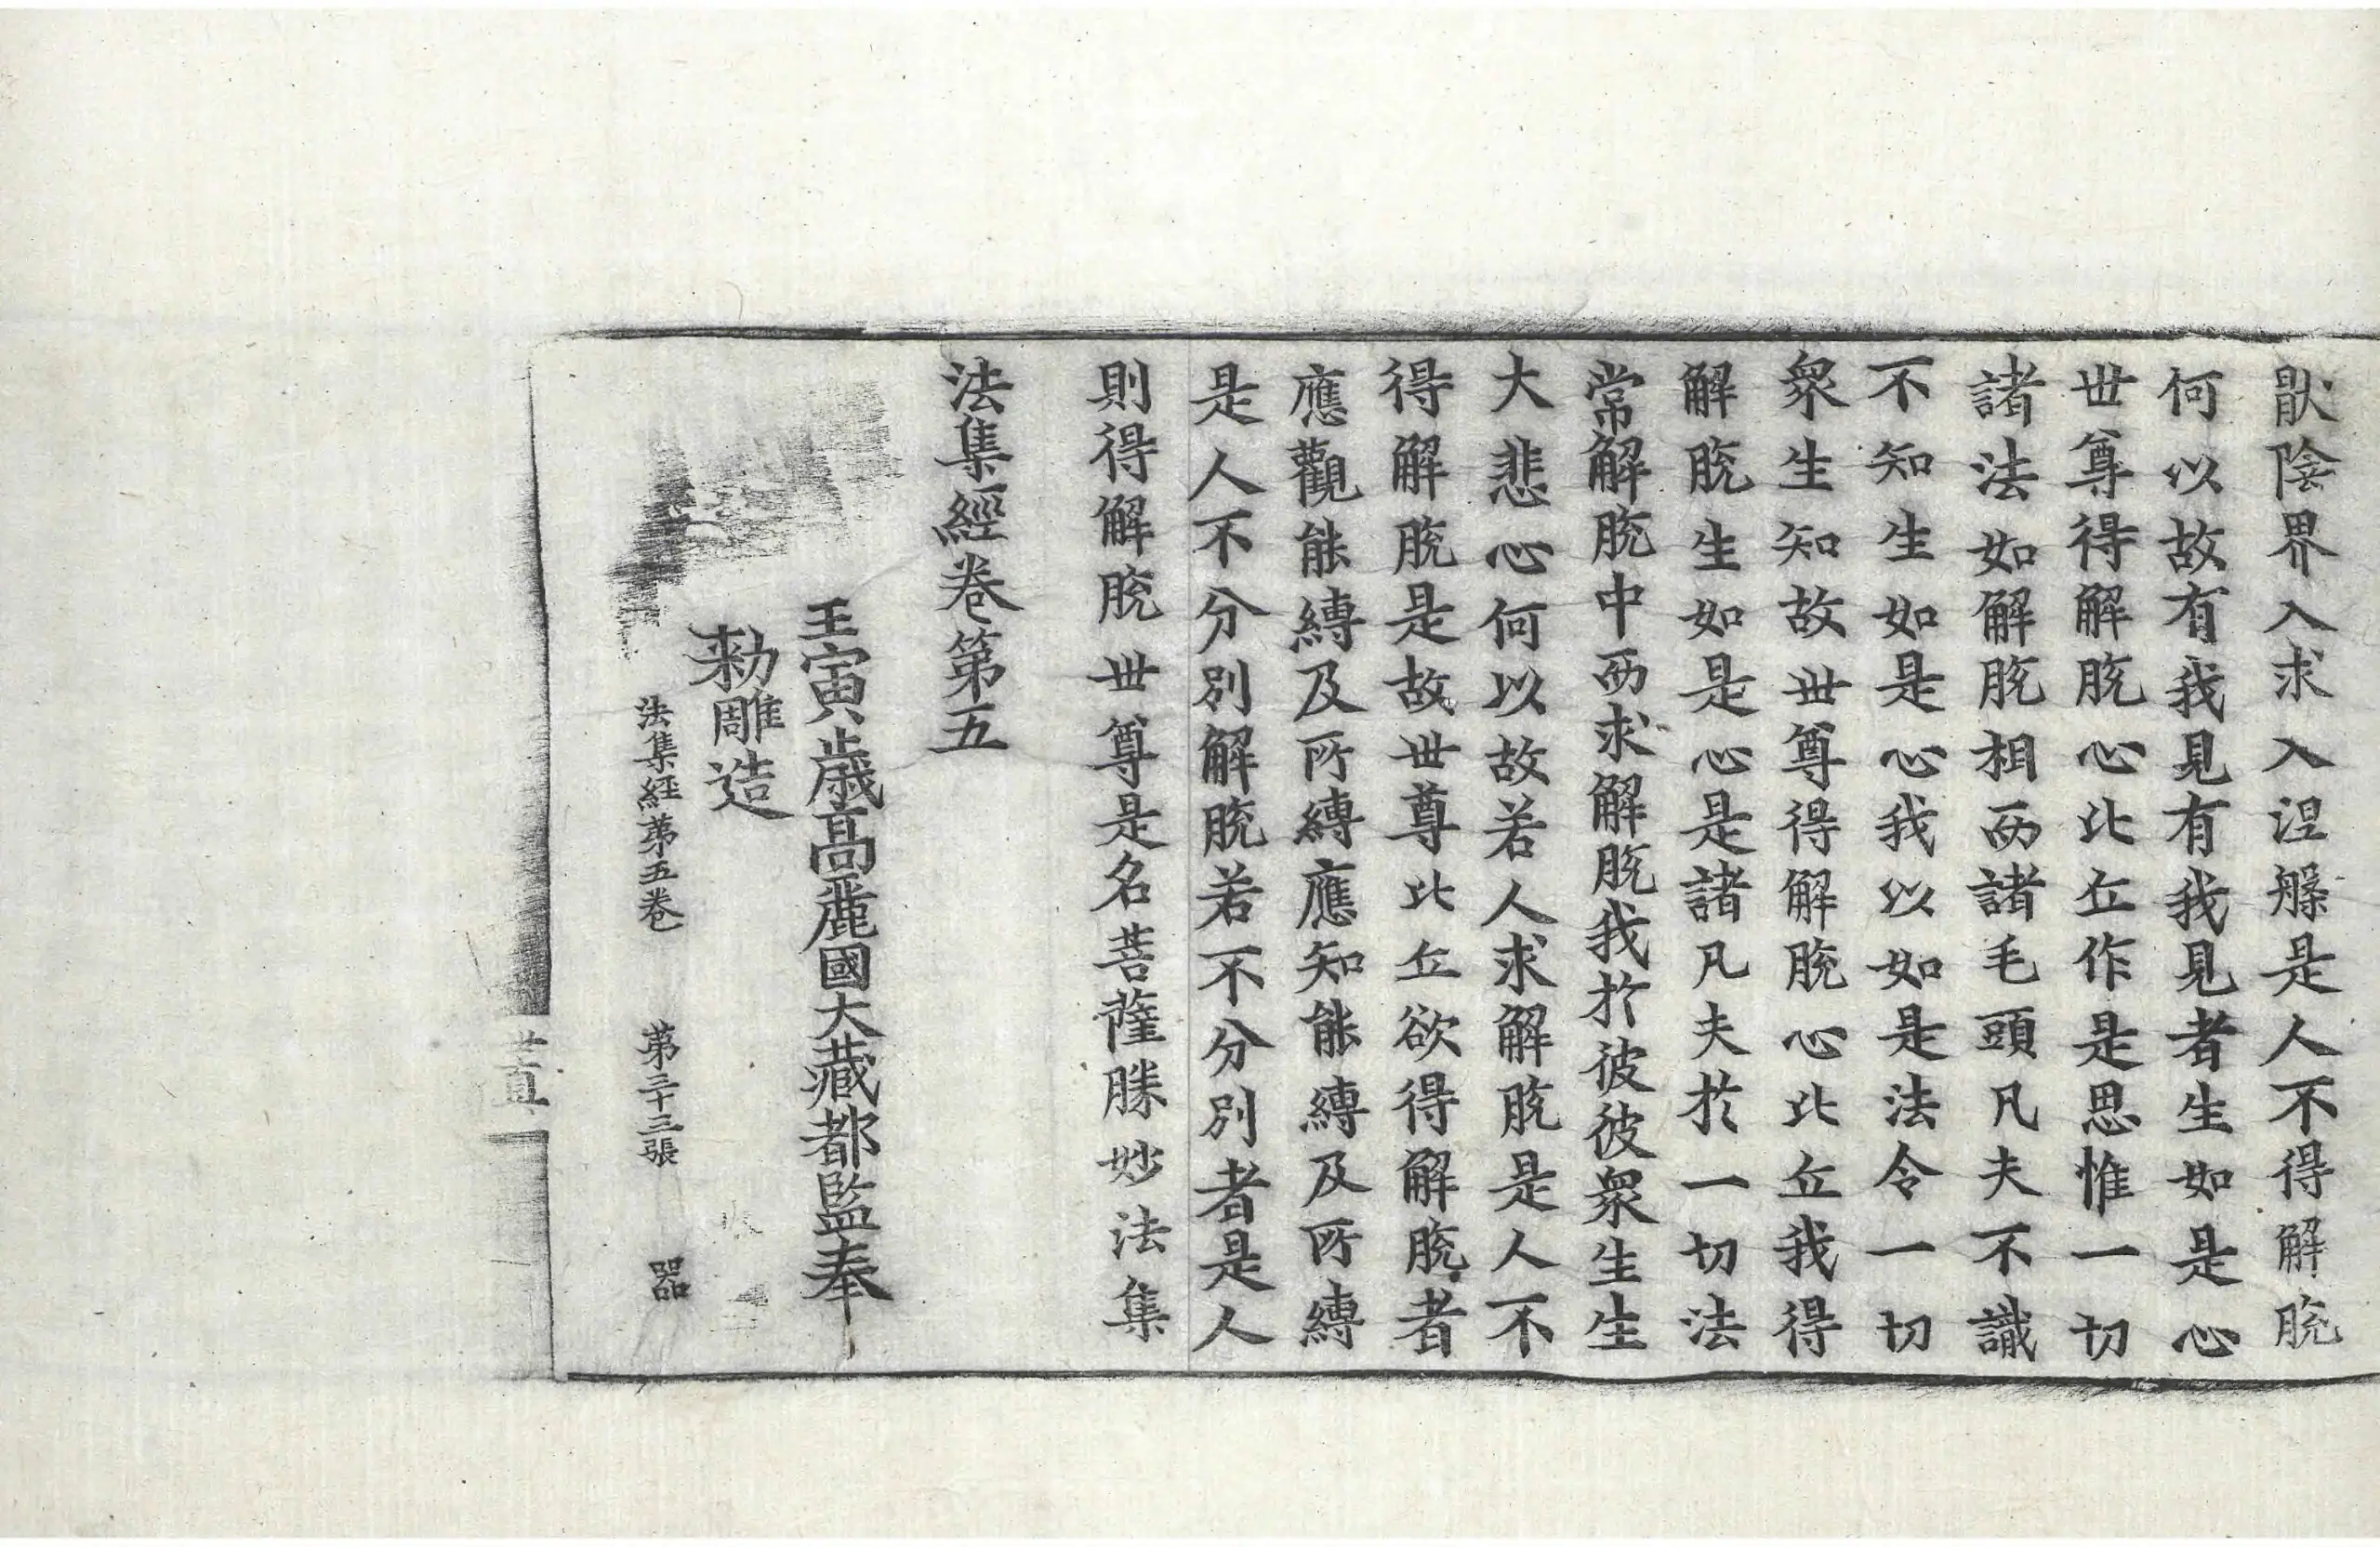 猒陰界入求入涅槃是人不得解脫
何以故有我見有我見者生如是心
世尊得解脫心比丘作是思惟一切
諸法如解脫相而諸毛頭凡夫不識
不知生如是心我以如是法令一切
衆生知故世尊得解脫心比丘我得
解脫生如是心是諸凡夫於一切法
常解脫中而求解脫我於彼彼衆生生
大悲心何以故若人求解脫是人不
得解脫是故世尊比丘欲得解脫者
應觀能縛及所縛應知能縛及所縛
是人不分別解脫若不分別者是人
則得解脫世尊是名菩薩勝妙法集
法集經卷第五
壬寅歲高麗國大藏都監奉
勅雕造
法集経苐五卷 苐三十三張 器